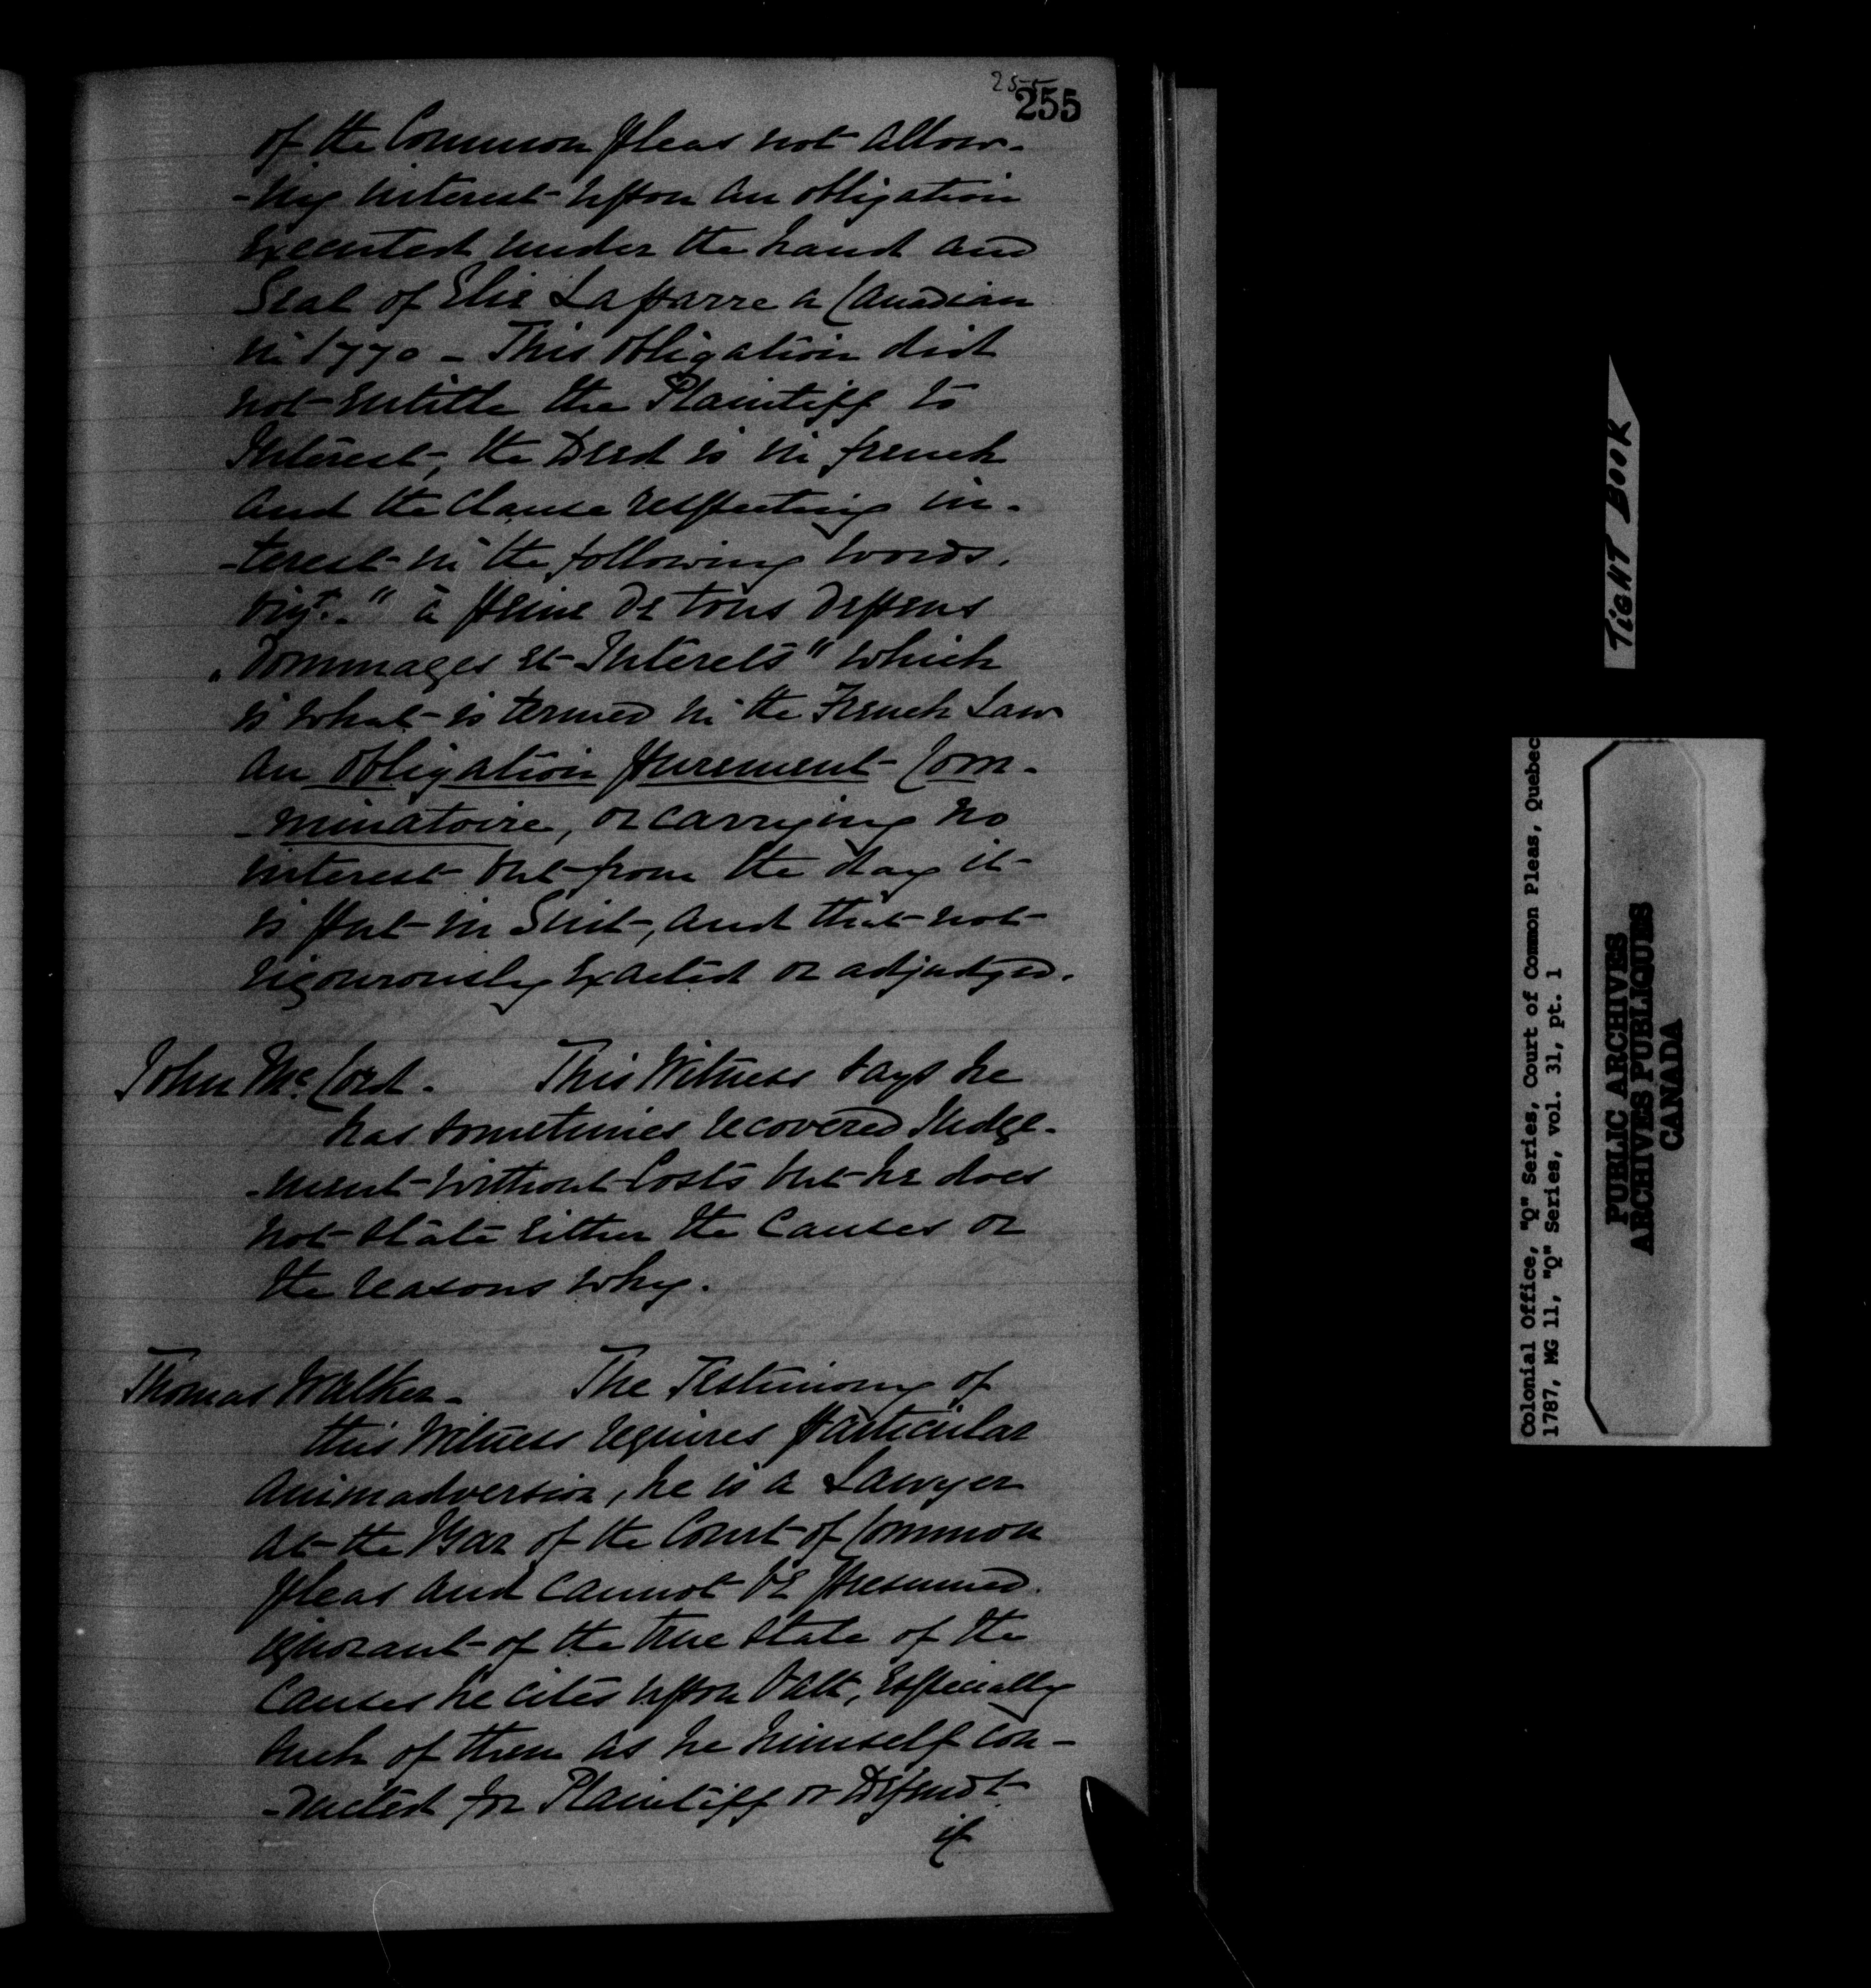 255
255
of the Common Pleas not allow-
-ing interest upon an obligation
executed under the hand and
Seal of Elie Laparre a Canadian
in 1770 - This obligation did
not entitle the Plaintiff to
Interest, the Deed is in french
and the clause respecting in-
-terest in the following words.
vizt. " à peine de tous depens
" Dommages et Interets " which
is what is termed in the French Law
an obligation purement Com-
-minatoire, or carrying no
interest but from the day it
is put in Suit, and that not
rigourously exacted or adjudged.
John McCord. This Witness says he
has sometimes recovered Judge-
-ment without Costs but he does
not state either the Causes or
the reasons why.
Thomas Walker - The Testimony of
this Witness requires particular
animadversion, he is a Lawyer
at the Bar of the Court of Common
pleas and cannot be presumed
ignorant of the true state of the
Causes he cites upon Oath, Especially
such of them as he himself con-
-ducted for Plaintiff or Defendt
if
TIGHT BOOK
Colonial Office, "Q" Series, Court of Common Pleas, Quebec
1787, MG 11, "Q" Series, vol. 31, pt. 1
PUBLIC ARCHIVES
ARCHIVES PUBLIQUES
CANADA